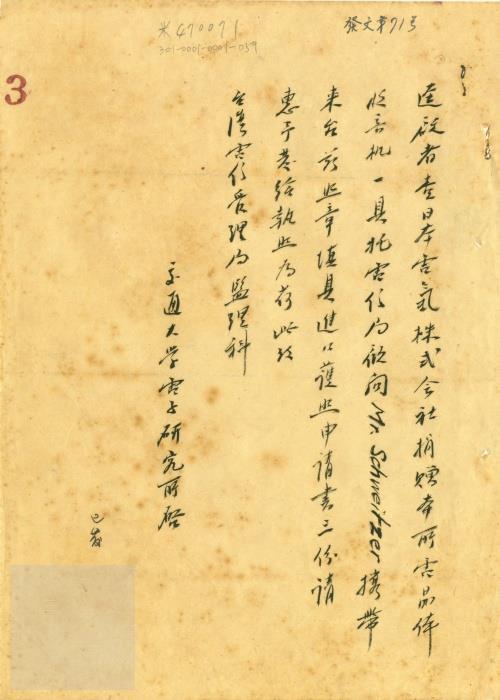 米470071
301-0001-0001-059
發文第71号
3
逕啟者查日本電氣株式会社捐贈本所電晶体
收音机一具托電信局顧問Mr. Schweitzer携帶
来台茲照章填具進口護照申請書三份請
惠予發給執照為荷此致
台湾電信管理局監理科
交通大学電子研究所啓
已發